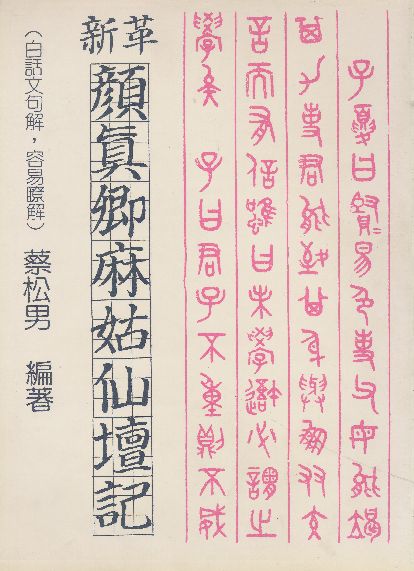 子夏曰賢=易色事父母能竭
其力事君能致其身與朋友交
言而有信雖曰未學吾必謂之
學矣 子曰君子不重則不威
革新
顏眞卿麻姑仙壇記
(白話文句解,容易瞭解) 蔡松男 編著